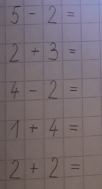 5 - 2 =
2 + 3 =
4 - 2 =
1 + 4 =
2 + 2 =